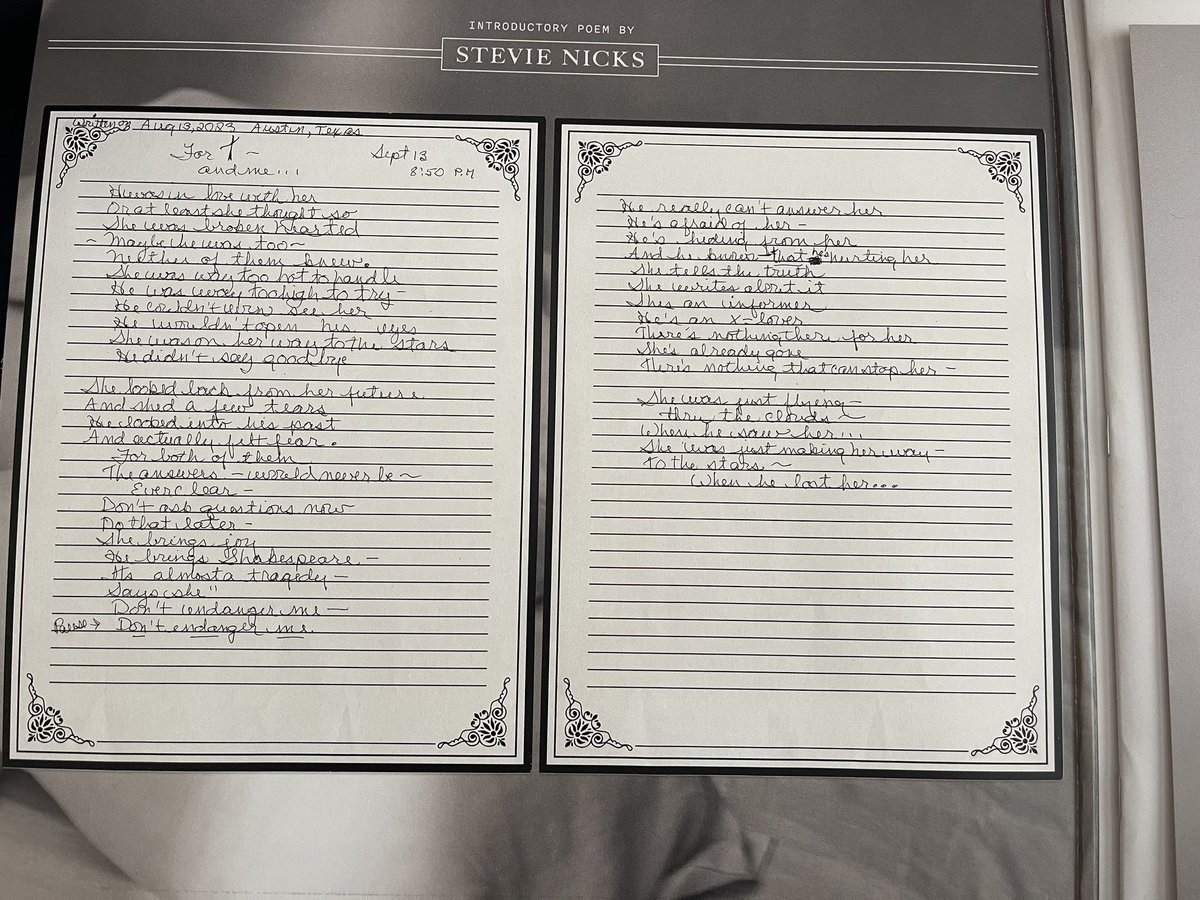 INTRODUCTORY POEM BY
STEVIE NICKS
Written on Aug 13, 2023 Austin, Texas
For T ~
and me...
Sept 13
8:50 P.M
He was in love with her
Or at least she thought so
She was broken hearted
~ Maybe he was too ~
Neither of them knew.
She was way too hot to handle
He was way too high to try
He couldn't even see her
He wouldn't open his eyes
She was on her way to the stars
He didn't say goodbye
She looked back from her future
And shed a few tears
He looked into his past
And actually felt fear.
For both of them
The answers - would never be ~
Ever clear -
Don't ask questions now
Do that later -
She brings joy
He brings Shakespeare -
It's almost a tragedy -
Says she"
Don't endanger me -
Pause → Don't endanger me.
He really can't answer her
He's afraid of her -
He's hiding from her
And he knows that he's hurting her
She tells the truth
She writes about it
She's an informer
He's an X-lover
There's nothing there for her
She's already gone
There's nothing that can stop her -
She was just flyeng -
thru the clouds ~
When he saw her...
She was just making her way -
to the stars ~
When he lost her...